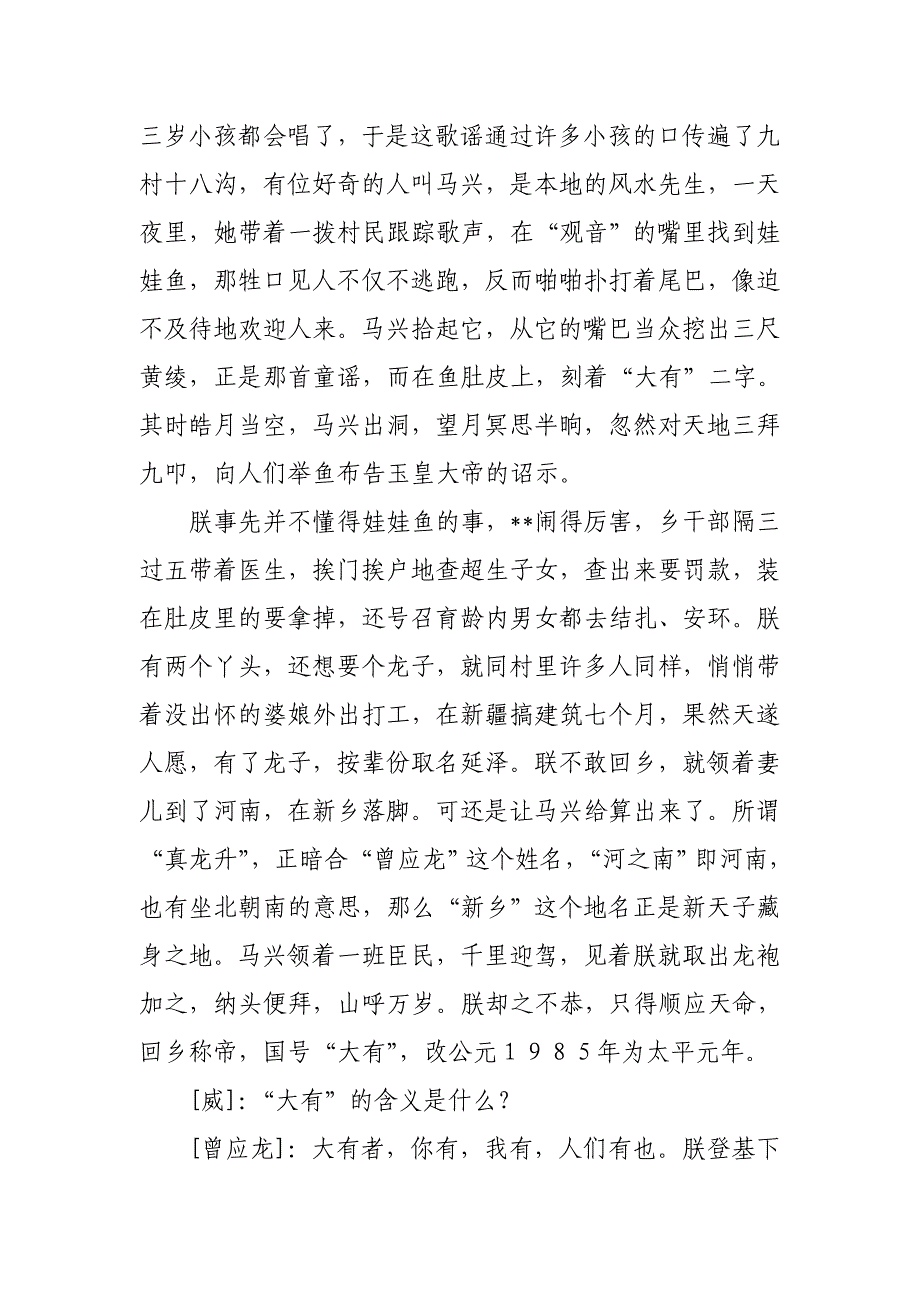 三岁小孩都会唱了，于是这歌谣通过许多小孩的口传遍了九
村十八沟，有位好奇的人叫马兴，是本地的风水先生，一天
夜里，她带着一拨村民跟踪歌声，在“观音”的嘴里找到娃
娃鱼，那牲口见人不仅不逃跑，反而啪啪扑打着尾巴，像迫
不及待地欢迎人来。马兴拾起它，从它的嘴巴当众挖出三尺
黄绫，正是那首童谣，而在鱼肚皮上，刻着“大有”二字。
其时皓月当空，马兴出洞，望月冥思半晌，忽然对天地三拜
九叩，向人们举鱼布告玉皇大帝的诏示。
朕事先并不懂得娃娃鱼的事，**闹得厉害，乡干部隔三
过五带着医生，挨门挨户地查超生子女，查出来要罚款，装
在肚皮里的要拿掉，还号召育龄内男女都去结扎、安环。朕
有两个丫头，还想要个龙子，就同村里许多人同样，悄悄带
着没出怀的婆娘外出打工，在新疆搞建筑七个月，果然天遂
人愿，有了龙子，按辈份取名延泽。联不敢回乡，就领着妻
儿到了河南，在新乡落脚。可还是让马兴给算出来了。所谓
“真龙升”，正暗合“曾应龙”这个姓名，“河之南”即河南，
也有坐北朝南的意思，那么“新乡”这个地名正是新天子藏
身之地。马兴领着一班臣民，千里迎驾，见着朕就取出龙袍
加之，纳头便拜，山呼万岁。朕却之不恭，只得顺应天命，
回乡称帝，国号“大有”，改公元１９８５年为太平元年。
[威]：“大有”的含义是什么？
[曾应龙]：大有者，你有，我有，人们有也。朕登基下